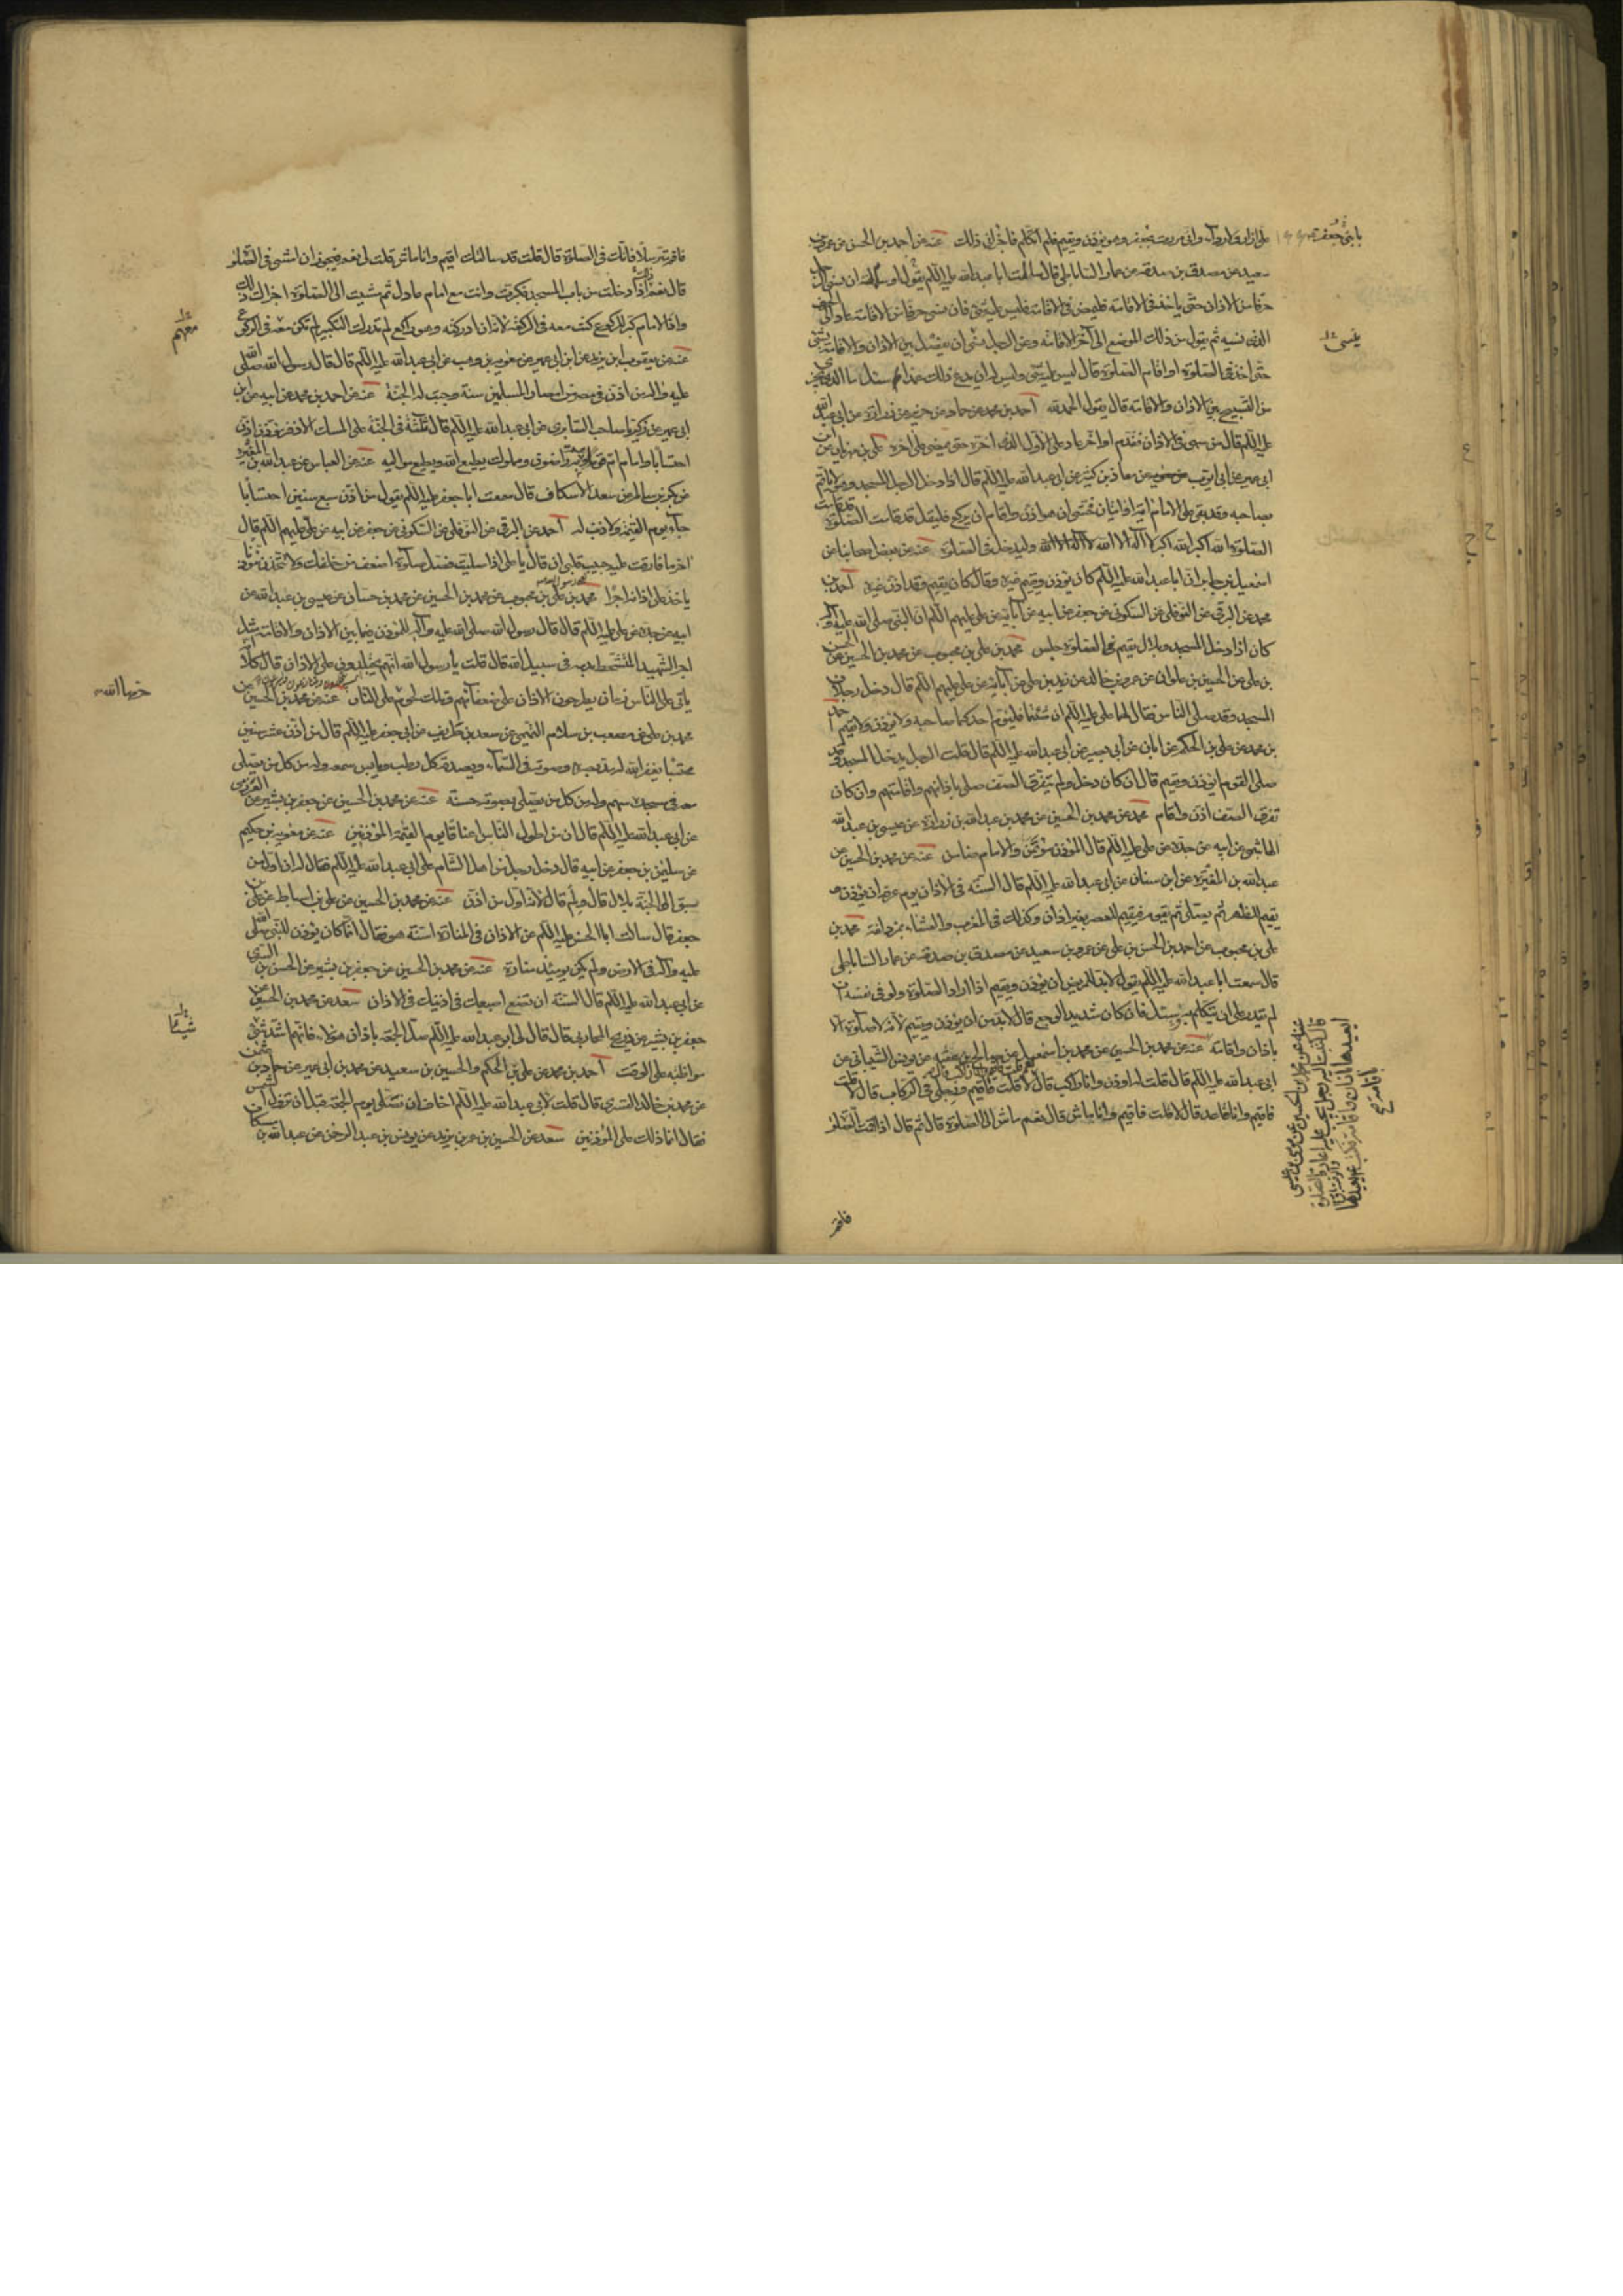 على ازار ولا رداء وانى مررت بجعفر وهو يؤذن ويقيم فلم اتكلم فاجزانى ذلك عنه عن احمد بن الحسن عن عمرو بن
سعيد عن مصدق بن صدقة عن عمار الساباطى قال سالت ابا عبد الله عليه السلم يقول ان نسى الرجل
حرفا من الاذان حتى ياخذ فى الاقامة فليمض فى الاقامة فليس عليه شئ فان نسى حرفا من الاقامة عاد الى الحرف
الذى نسيه ثم يقول من ذلك الموضع الى آخر الاقامة وعن الرجل نسى ان يفصل بين الاذان والاقامة بشئ
حتى اخذ فى الصلوة او اقام الصلوة قال ليس عليه شئ وليس له ان يدع ذلك عمدا سئل ما الذى يجزى
من التسبيح بين الاذان والاقامة قال يقول الحمد لله احمد بن محمد عن حماد عن حريز عن زرارة عن ابى عبد الله
عليه السلم قال من سهى فى الاذان فقدم او اخر عاد على الاول الذى اخره حتى يمضى على اخره على بن مهزيار عن
ابى عمير عن ابى ايوب عن معاذ بن كثير عن ابى عبد الله عليه السلم قال اذا دخل الرجل المسجد وهو لا ياتم
بصاحبه وقد بقى على الامام آية او آيتان فخشى ان هو اذن واقام ان يركع فليقل قد قامت الصلوة قد قامت
الصلوة الله اكبر الله اكبر لا اله الا الله وليدخل فى الصلوة عنه عن بعض اصحابنا عن
اسمعيل بن جابر ان ابا عبد الله عليه السلم كان يؤذن ويقيم غيره وقال كان يقيم وقد اذن غيره احمد بن
محمد عن البرقى عن النوفلى عن السكونى عن جعفر عن ابيه عن آبائه عن على عليهم السلم ان النبى صلى الله عليه وآله
كان اذا دخل المسجد وبلال يقيم الصلوة جلس محمد بن على بن محبوب عن محمد بن الحسين عن الحسن
بن على عن الحسين بن علوان عن عمرو بن خالد عن زيد بن على عن آبائه عن على عليهم السلم قال دخل رجلان
المسجد وقد صلى الناس فقال لهما على عليه السلم ان شئتما فليؤم احدكما صاحبه ولا يؤذن ولا يقيم احمد
بن محمد عن على بن الحكم عن ابان عن ابى بصير عن ابى عبد الله عليه السلم قال قلت الرجل يدخل المسجد وقد
صلى القوم ايؤذن ويقيم قال ان كان دخل ولم يتفرق الصف صلى باذانهم واقامتهم وان كان
تفرق الصف اذن واقام محمد عن محمد بن الحسين عن محمد بن عبد الله بن زرارة عن عيسى بن عبد الله
الهاشمى عن ابيه عن جده عن على عليه السلم قال المؤذن مؤتمن والامام ضامن عنه عن محمد بن الحسين عن
عبد الله بن المغيرة عن ابن سنان عن ابى عبد الله عليه السلم قال السنة فى الاذان يوم عرفة ان يؤذن و
يقيم للظهر ثم يصلى ثم يقوم فيقيم للعصر بغير اذان وكذلك فى المغرب والعشاء بمزدلفة محمد بن
على بن محبوب عن احمد بن الحسن بن على عن عمرو بن سعيد عن مصدق بن صدقة عن عمار الساباطى
قال سمعت ابا عبد الله عليه السلم يقول لابد للمريض ان يؤذن ويقيم اذا اراد الصلوة ولو فى نفسه ان
لم يقدر على ان يتكلم به سئل فان كان شديد الوجع قال لابد من ان يؤذن ويقيم لانه لا صلوة الا
باذان واقامة عنه عن محمد بن الحسين عن محمد بن اسمعيل عن صالح بن عقبه عن يونس الشيبانى عن
ابى عبد الله عليه السلم قال قلت له اوذن وانا راكب قال نعم قلت فاقيم ورجلى فى الركاب قال لا قلت
فاقيم وانا قاعد قال لا قلت فاقيم وانا ماش قال نعم ماش الى الصلوة قال ثم قال اذا اقمت الصلوة
ينسى
فاقم
فاقم مترسلا فانك فى الصلوة قال قلت قد سالتك اقيم وانا ماش قلت لى نعم فيجوز ان امشى فى الصلوة
قال نعم اذا دخلت من باب المسجد فكبرت وانت مع امام عادل ثم مشيت الى الصلوة اجزاك ذلك
واذا الامام كبر للركوع كنت معه فى الركعة لانه ان ادركته وهو راكع لم تدرك التكبير لم تكن معه فى الركوع
عنه عن يعقوب بن يزيد عن ابن ابى عمير عن معوية بن وهب عن ابى عبد الله عليه السلم قال قال رسول الله صلى الله
عليه وآله من اذن فى مصر من امصار المسلمين سنة وجبت له الجنة عنه عن احمد بن محمد عن ابيه عن ابن
ابى عمير عن زكريا صاحب السابرى عن ابى عبد الله عليه السلم قال ثلثة فى الجنة على المسك الاذفر مؤذن اذن
احتسابا وامام ام قوما وهم به راضون ومملوك يطيع الله ويطيع مواليه عنه عن العباس عن عبد الله بن المغيرة
عن بكر بن سالم عن سعد الاسكاف قال سمعت ابا جعفر عليه السلم يقول من اذن سبع سنين احتسابا
جاء يوم القيمة ولا ذنب له احمد عن البرقى عن النوفلى عن السكونى عن جعفر عن ابيه عن على عليهم السلم قال
اخر ما فارقت عليه حبيب قلبى ان قال يا على اذا صليت فصل صلوة اضعف من خلفك ولا تتخذن مؤذنا
ياخذ على اذانه اجرا محمد بن على بن محبوب عن محمد بن الحسين عن محمد بن حسان عن عيسى بن عبد الله عن
ابيه عن جده عن على عليه السلم قال قال رسول الله صلى الله عليه وآله للمؤذن فيما بين الاذان والاقامة مثل
اجر الشهيد المتشحط بدمه فى سبيل الله قال قلت يا رسول الله انهم يجتلدون على الاذان قال كلا انه
ياتى على الناس زمان يطرحون الاذان على ضعفائهم وتلك لحوم حرمها الله على النار عنه عن محمد بن الحسين عن
محمد بن على عن مصعب بن سلام التميمى عن سعد بن طريف عن ابى جعفر عليه السلم قال من اذن عشر سنين
محتسبا يغفر الله له مد بصره وصوته فى السماء ويصدقه كل رطب ويابس سمعه وله من كل من يصلى
معه فى مسجده سهم وله من كل من يصلى بصوته حسنة عنه عن محمد بن الحسين عن جعفر بن بشير عن العرزمى
عن ابى عبد الله عليه السلم قال ان من اطول الناس اعناقا يوم القيمة المؤذنين عنه عن معوية بن حكيم
عن سليمن بن جعفر عن ابيه قال دخل رجل من اهل الشام على ابى عبد الله عليه السلم فقال له ان اول من
سبق الى الجنة بلال قال ولم قال لانه اول من اذن عنه عن محمد بن الحسين عن على بن اسباط عن على بن
جعفر قال سالت ابا الحسن عليه السلم عن الاذان فى المنارة اسنة هو فقال انما كان يؤذن للنبى صلى الله
عليه وآله فى الارض ولم يكن يومئذ منارة عنه عن محمد بن الحسين عن جعفر بن بشير عن الحسن بن السرى
عن ابى عبد الله عليه السلم قال السنة ان تضع اصبعيك فى اذنيك فى الاذان سعد عن محمد بن الحسين عن
جعفر بن بشير عن ذريح المحاربى قال قال لى ابو عبد الله عليه السلم صل الجمعة باذان هؤلاء فانهم اشد شئ
مواظبة على الوقت احمد بن محمد عن على بن الحكم والحسين بن سعيد عن محمد بن ابى عمير عن حماد بن عثمن
عن محمد بن خالد القسرى قال قلت لابى عبد الله عليه السلم اخاف ان نصلى يوم الجمعة قبل ان تزول الشمس
فقال انما ذلك على المؤذنين سعد عن الحسين بن عمر بن يزيد عن يونس بن عبد الرحمن عن عبد الله بن مسكان
معهم
حرمها الله
شيئا